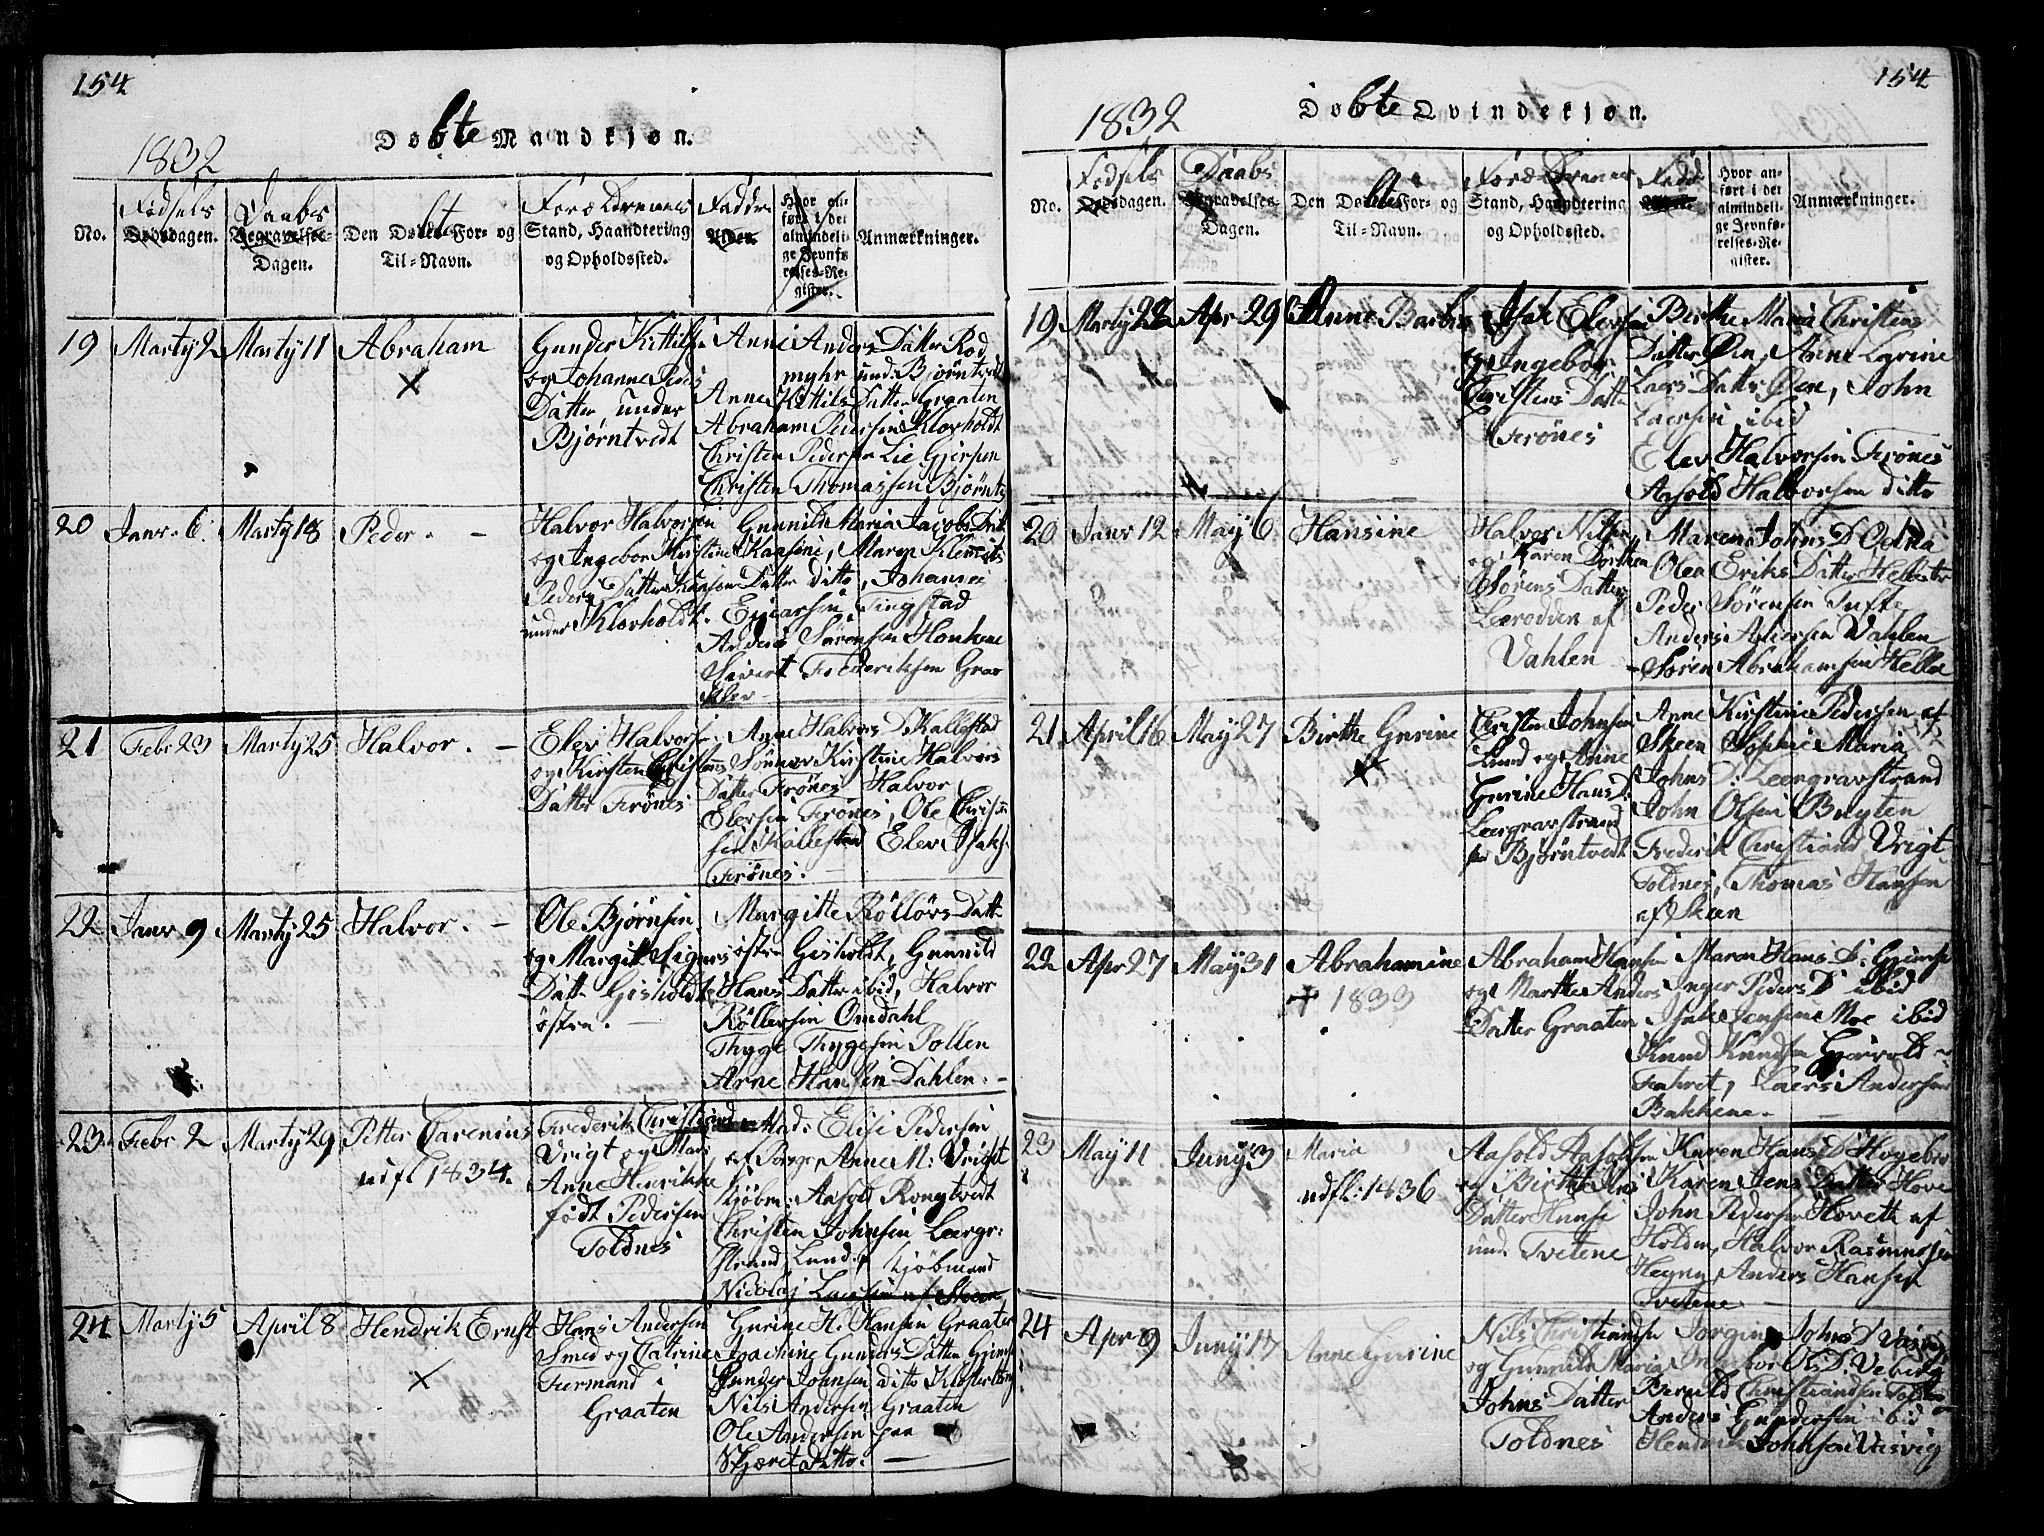 154
1832
Døbte Mandkjøn.
No.
Fødsels
Dødsdagen.
Daabs
Begravelses-
Dagen.
Den Døbtes For- og
Til-Navn.
Forældrenes
Stand, Haandtering
og Opholdssted.
Faddre
Alder.
Hvor an-
ført i det
almindeli-
ge Jevnfø-
relses-Re-
gister.
Anmærkninger.
19
Marty 2
Marty 11
Abraham
×
Gunder Kittilsen
og Johanne Peders
Datter under
Bjørntvedt
Anne Anders Datter Rod
myhr und: Bjørntvedt
Anne Kittils Datter Graaten
Abraham Pedersen Klovholdt
Christen Pedersen Lie Gjersen
Christen Thomassen Bjørntv
20
Janr. 6.
Marty 18
Peder. -
Halvor Halvorsen
og Ingebor Kirstine
Peders Datter
under Klovholdt.
Gunnild Maria Jacobs Datt
Kaasine, Maren Klemets
Datter ditto, Johannes
Ejnarsen Tingstad
Anders Sörensen Honhene
Sivert Frederiksen Graa
21
Febr 23
Marty 25
Halvor. -
Elev Halvorsen
og Kirsten Christens
Datter Frönes
Anne Halvors D Kallestad
Sönnev Kirstine Halvors
Datter Frönes Halvor
Elevsen Frönes, Ole Christen
sen Kallestad Elev Isaks.
Frönes.
22
Janr 9
Marty 25
Halvor. -
Ole Bjørnsen
og Margit Signes
Datt. Gisholdt
östre. -
Margitte Röllövs Datt.
östre Gisholdt, Gunnild
Hans Datter ibid, Halvor
Röllevsen Omdahl
Thyge Thygesen Pollen
Arne Hansen Dahlen. -
23
Febr 2
Marty 29
Petter Carenius
udfl 1834.
Frederik Christiand
Vrigt og Mad.
Anne Henrikke
födt Pedersen
Toldnes
Mad. Elise Pedersen
af Porsgr Anne M: Vrigt
Kjöbm. Aasold Rongtvedt
Christen Johnsen Leergr:
strand Lund, Kjöbmand
Nicolaj Laersen af Skeen
24
Marty 5
April 8
Hendrik Ernst
×
Hans Andersen
Smed og Catrine
Fuermand i
Graaten
Gurine H. Hansen Graaten
Joachine Gunders Datter Gjemse
Gunder Johnsen ditto Klosterb
Nils Andersen Graaten
Ole Andersen paa
Skjæret Ditto. -
154
1832
Døbte Qvindekjøn.
No.
Fødsels
Dødsdagen.
Daabs
Begravelses-
Dagen.
Den Døbtes For- og
Til-Navn.
Forældrenes
Stand, Haandtering
og Opholdssted.
Fadd
Alder.
Hvor an-
ført i det
almindeli-
ge Jevnfø-
relses-Re-
gister.
Anmærkninger.
19
Marty 22
Apr 29
Anne Barbra
Isak Elevsen
og Ingebor
Christens Datt
Frönes
Birthe Maria Christens
Datter Öen, Anne Larine
Laers Datter Öen, John
Laersen ibid
Elev Halvorsen Frönes
Aasold Halvorsen ditto
20
Janr 12
May 6
Hansine
Halvor Nilsen
og Karen Dorthea
Sörens Datter
Leerodden af
Vahlen
Maren Johns D
Olea Eriks Datter
Peder Sörensen Tufte
Anders Andersen Vahlen
Sören Abrahamsen Hella
21
April 16
May 27
Birthe Gurine
×
Christen Johnsen
Lund og Anne
Gurine Hans D:
Leergravstrand
Bjørntvedt
Anne Kirstine Pedersen af
Skeen Sophie Maria
Johns D: Leergravstrand
John Olsen Bugten
Frederik Christiand Vrigt
Toldnes, Thomas Hansen
af Skeen
22
Apr 27
May 31
Abrahamine
+ 1833
Abraham Hansen
og Marthe Anders
Datter Graaten
Maren Hans D: Gjemse
Inger Peders D ibid
Isak Jensen Moe ibid
Knud Knudsen
Laers Andersen
Bakkene. -
23
May 11
Juny 3
Maria
udfl: 1436
Aasold Aasoldsen
og Birthe
Datter
und. Tvetene
Karen Hans D
Karen Jens Datter Hove
John Pedersen Hoveth af
Holden, Halvor Rasmussen
Anders Hansen
Tvetene
24
Apr 9
Juny 17
Anne Gurine
Nils Christiandsen
og Gunnild Maria
Johns Datter
Toldnes
Jorgine Johns D Vasvig
Christiandsen
Anders Gundersen ibid
Hendrik Johnsen Vasvig